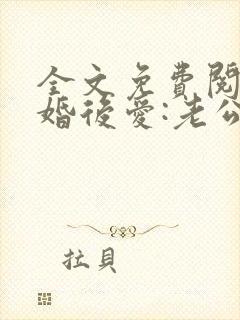 全文免費閱
婚後愛:老公
拉貝